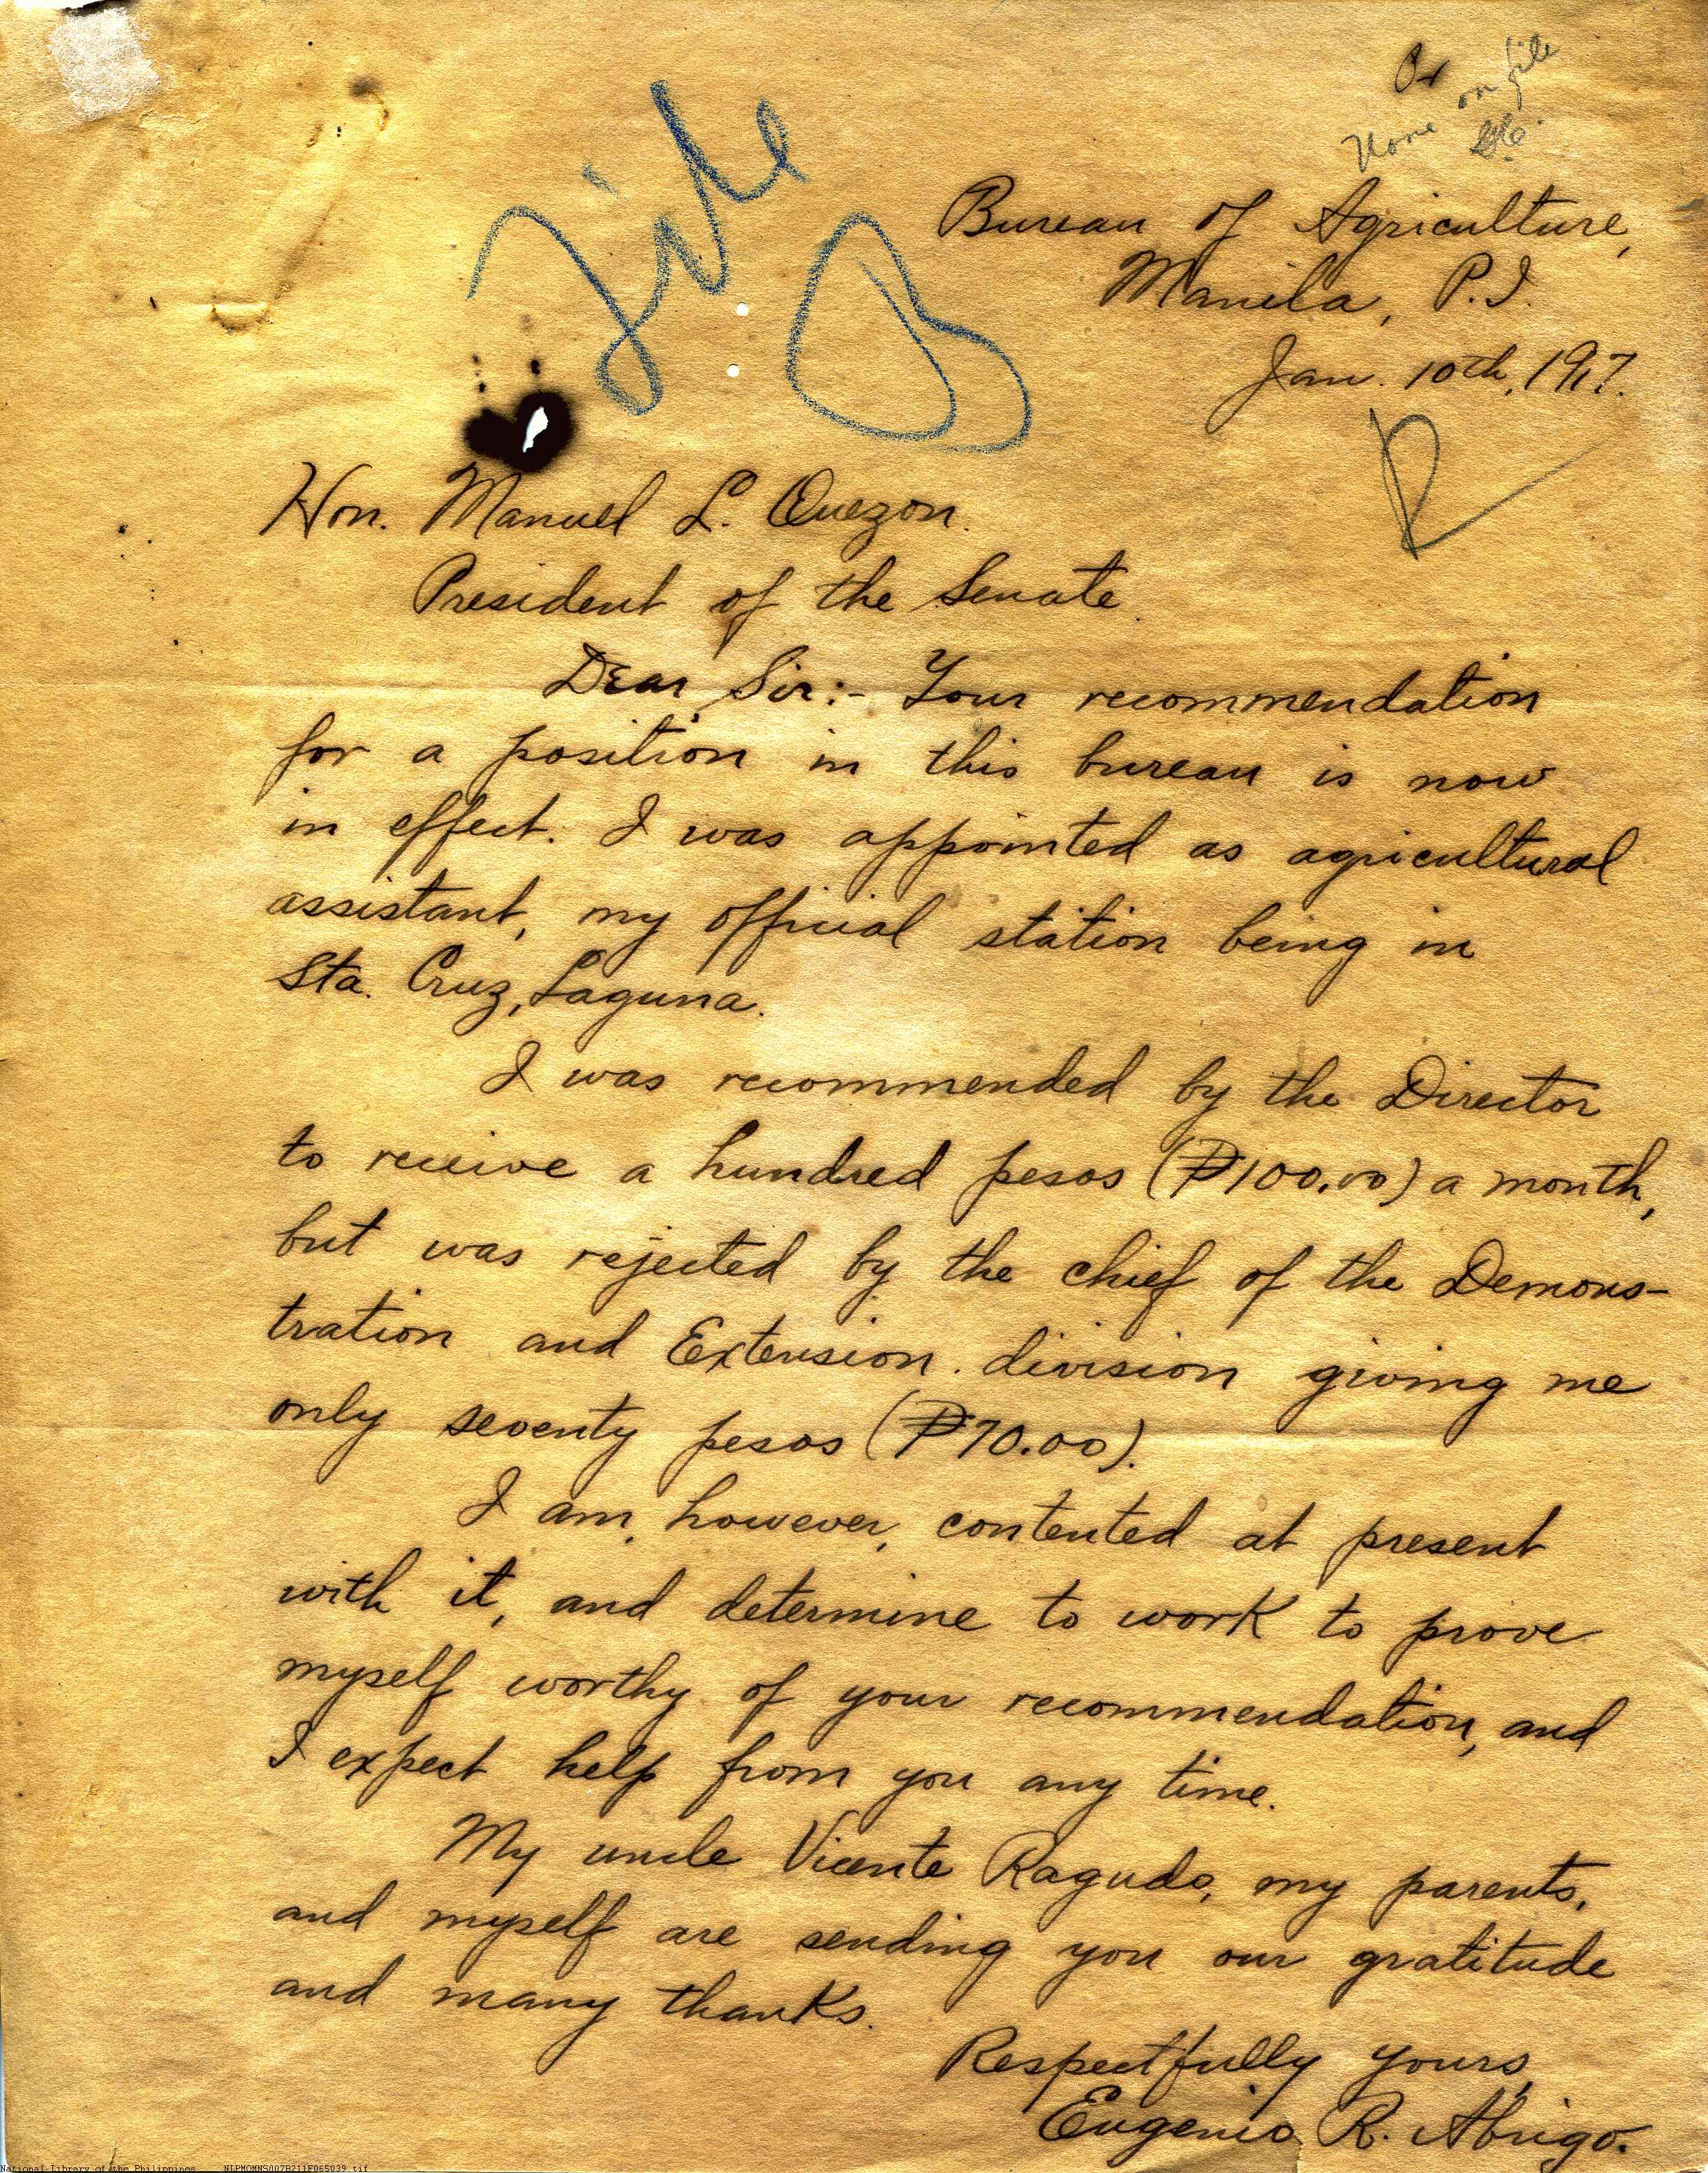 on file
None
File
Bureau of Agriculture,
Manila, P.I.
Jan. 10th, 1917.
Hon. Manuel L. Quezon.
President of the Senate.
Dear Sir:- Your recommendation
for a position in this bureau is now
in effect. I was appointed as agricultural
assistant, my official station being in
Sta. Cruz, Laguna.
I was recommended by the Director
to receive a hundred pesos (₱100.00) a month,
but was rejected by the chief of the Demons-
tration and Extension division giving me
only seventy pesos (₱70.00).
I am, however, contented at present
with it, and determine to work to prove
myself worthy of your recommendation, and
I expect help from you any time.
My uncle Vicente Ragudo, my parents,
and myself are sending you our gratitude
and many thanks.
Respectfully yours,
Eugenio R. Abrigo.
National Library of the Philippines NLPMOMNS007B211F065039.tif